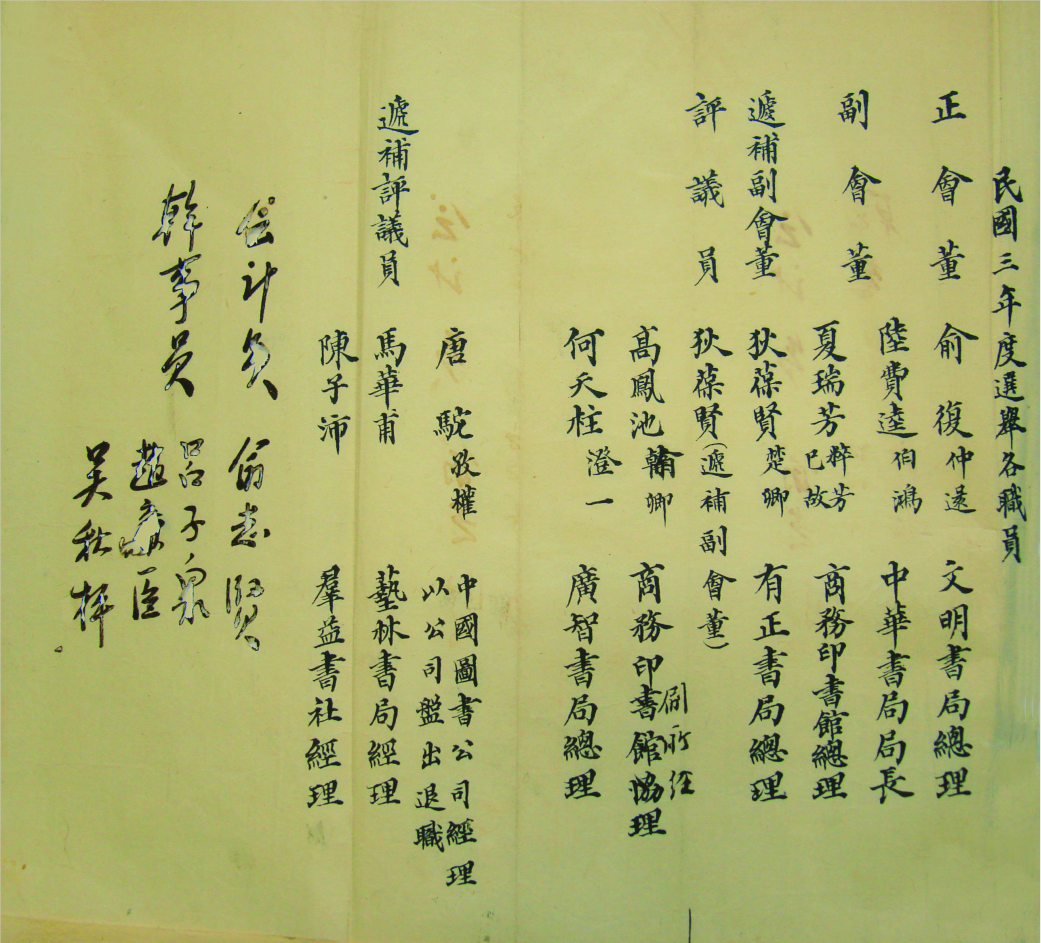 民國三年度選舉各職員
正會董 俞復 仲還 文明書局總理
陸費逵 伯鴻 中華書局局長
副會董 夏瑞芳 粹芳 已故 商務印書館總理
遞補副會董 狄葆賢 楚卿 有正書局總理
評議員 狄葆賢(遞補副會董)
高鳳池 翰卿 商務印書館協理
何天柱 澄一 廣智書局總理
唐駝 孜權 中國圖書公司經理
以公司盤出退職
遞補評議員 馬華甫 藝林書局經理
陳子沛 羣益書社經理
會計員 俞志賢
幹事員 呂子泉
趙廉臣
吳秋坪